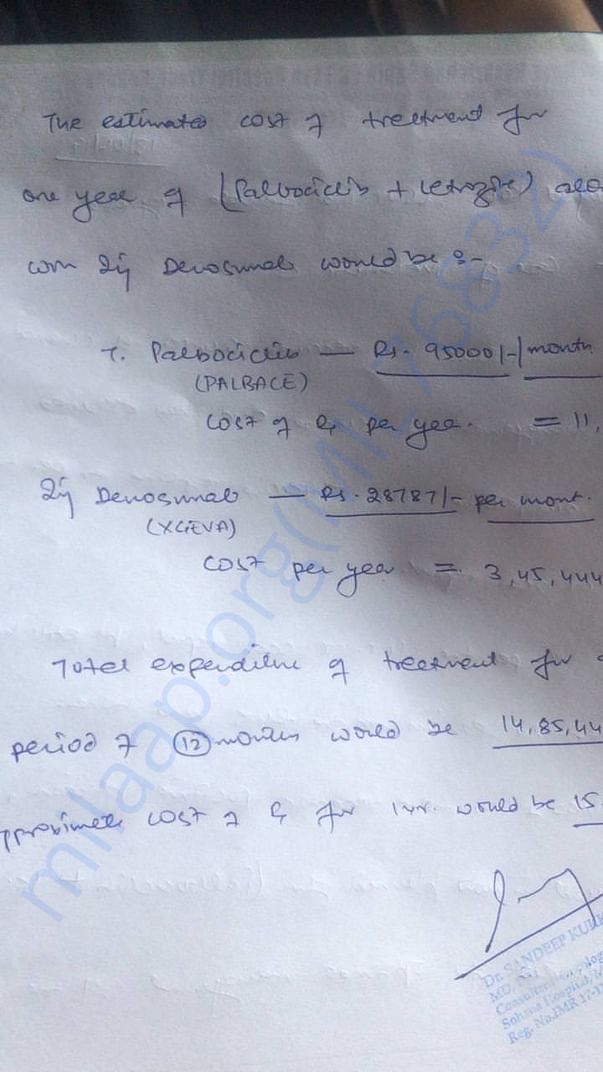 The estimated cost of treatment for
one year of (Palbociclib + Letrozole)
with Inj Denosumab would be :-
T. Palbociclib — Rs. 95000/-/month
(PALBACE)
cost of per year. = 11,
Inj Denosumab — Rs. 28787/- per mont.
(XGEVA)
cost per year = 3,45,444
Total expenditure of treatment for
period of 12 months would be 14,85,44
cost of for 1 yr. would be 15
Dr. SANDEEP KUM
MD,
Consultant
Sohana Hospital,
Reg. No.
milaap.org(MIL76832)